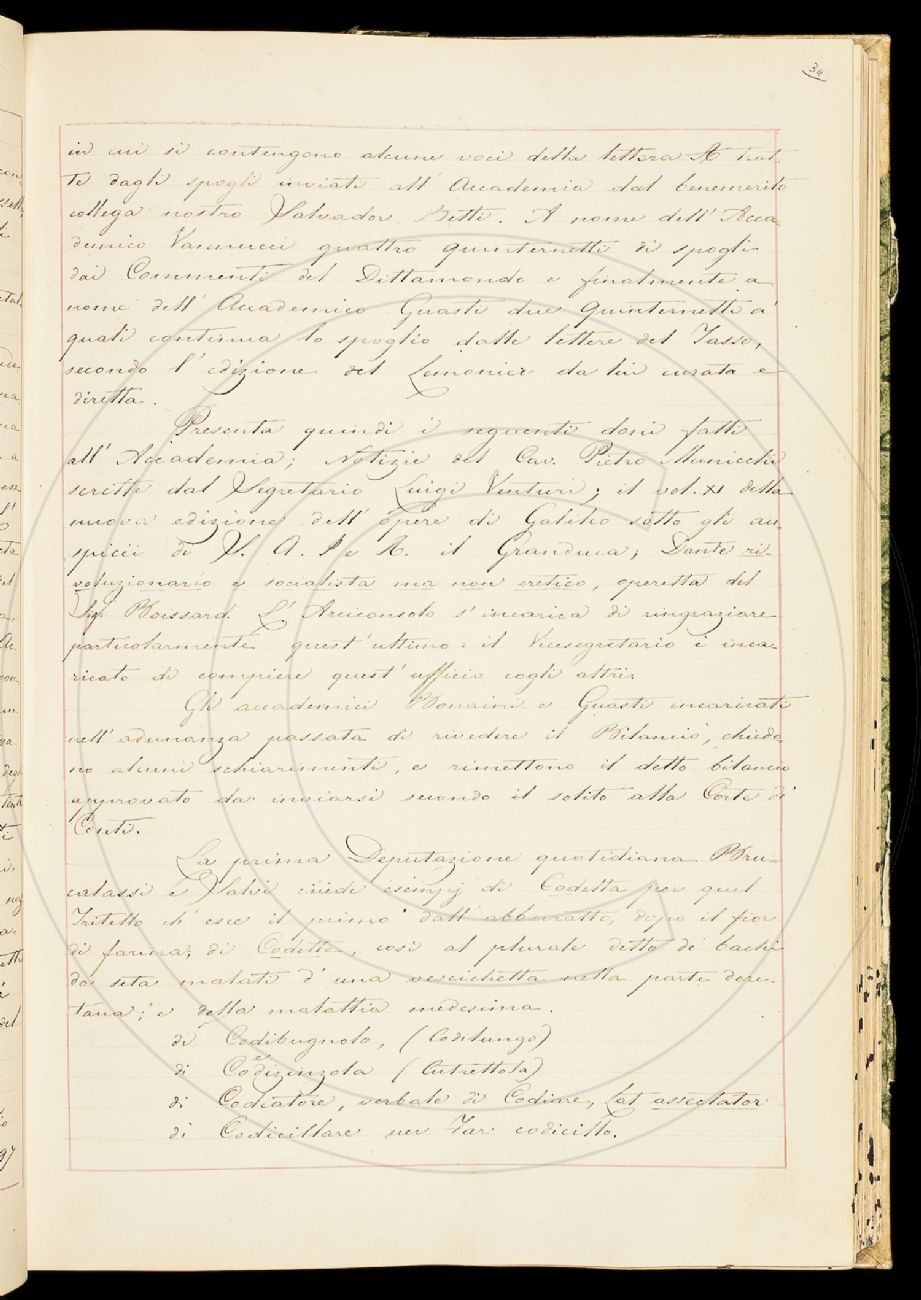 34
in cui si contengono alcune voci della lettera A trat-
te dagli spogli inviati all' Accademia dal benemerito
collega nostro Salvador Betti. A nome dell' Acca-
demico Vannucci quattro quinternetti di spogli
dai Commenti del Dittamondo e finalmente a
nome dell' Accademico Guasti due Quinternetti a'
quali continua lo spoglio dalle lettere del Tasso,
secondo l' edizione del Lemonier da lui curata e
diretta.
Presenta quindi i seguenti doni fatti
all' Accademia; Notizie del Cav. Pietro Municchi
scritte dal Segretario Luigi Venturi; il vol. XI della
nuova edizione dell' opere di Galileo sotto gli au
spicii di S. A. I e R. il Granduca; Dante ri-
voluzionario e socialista ma non eretico, operetta del
Sig. Boissard. L' Arciconsolo s' incarica di ringraziare
particolarmente quest' ultimo: il Vicesegretario è inca-
ricato di compiere quest' ufficio cogli altri.
Gli accademici Bonaini e Guasti incaricati
nell' adunanza passata di rivedere il Bilancio, chiedo-
no alcuni schiarimenti, e rimettono il detto bilancio
approvato da inviarsi secondo il solito alla Corte di'
Conti.
La prima Deputazione quotidiana Bru-
calassi e Salvi chiede esempj di Codetta per quel
Tritello ch' esce il primo dall' abburatto, dopo il fior
di farina; di Codette, così al plurale detto de' bachi
da seta malati d' una vescichetta nella parte dere-
tana; e della malattia medesima.
di Codibugnolo, (Codilungo)
di Codizinzola (Cutrettola)
di Codiatore, verbale di Codiare, Lat assectator
di Codicillare per Far codicillo.